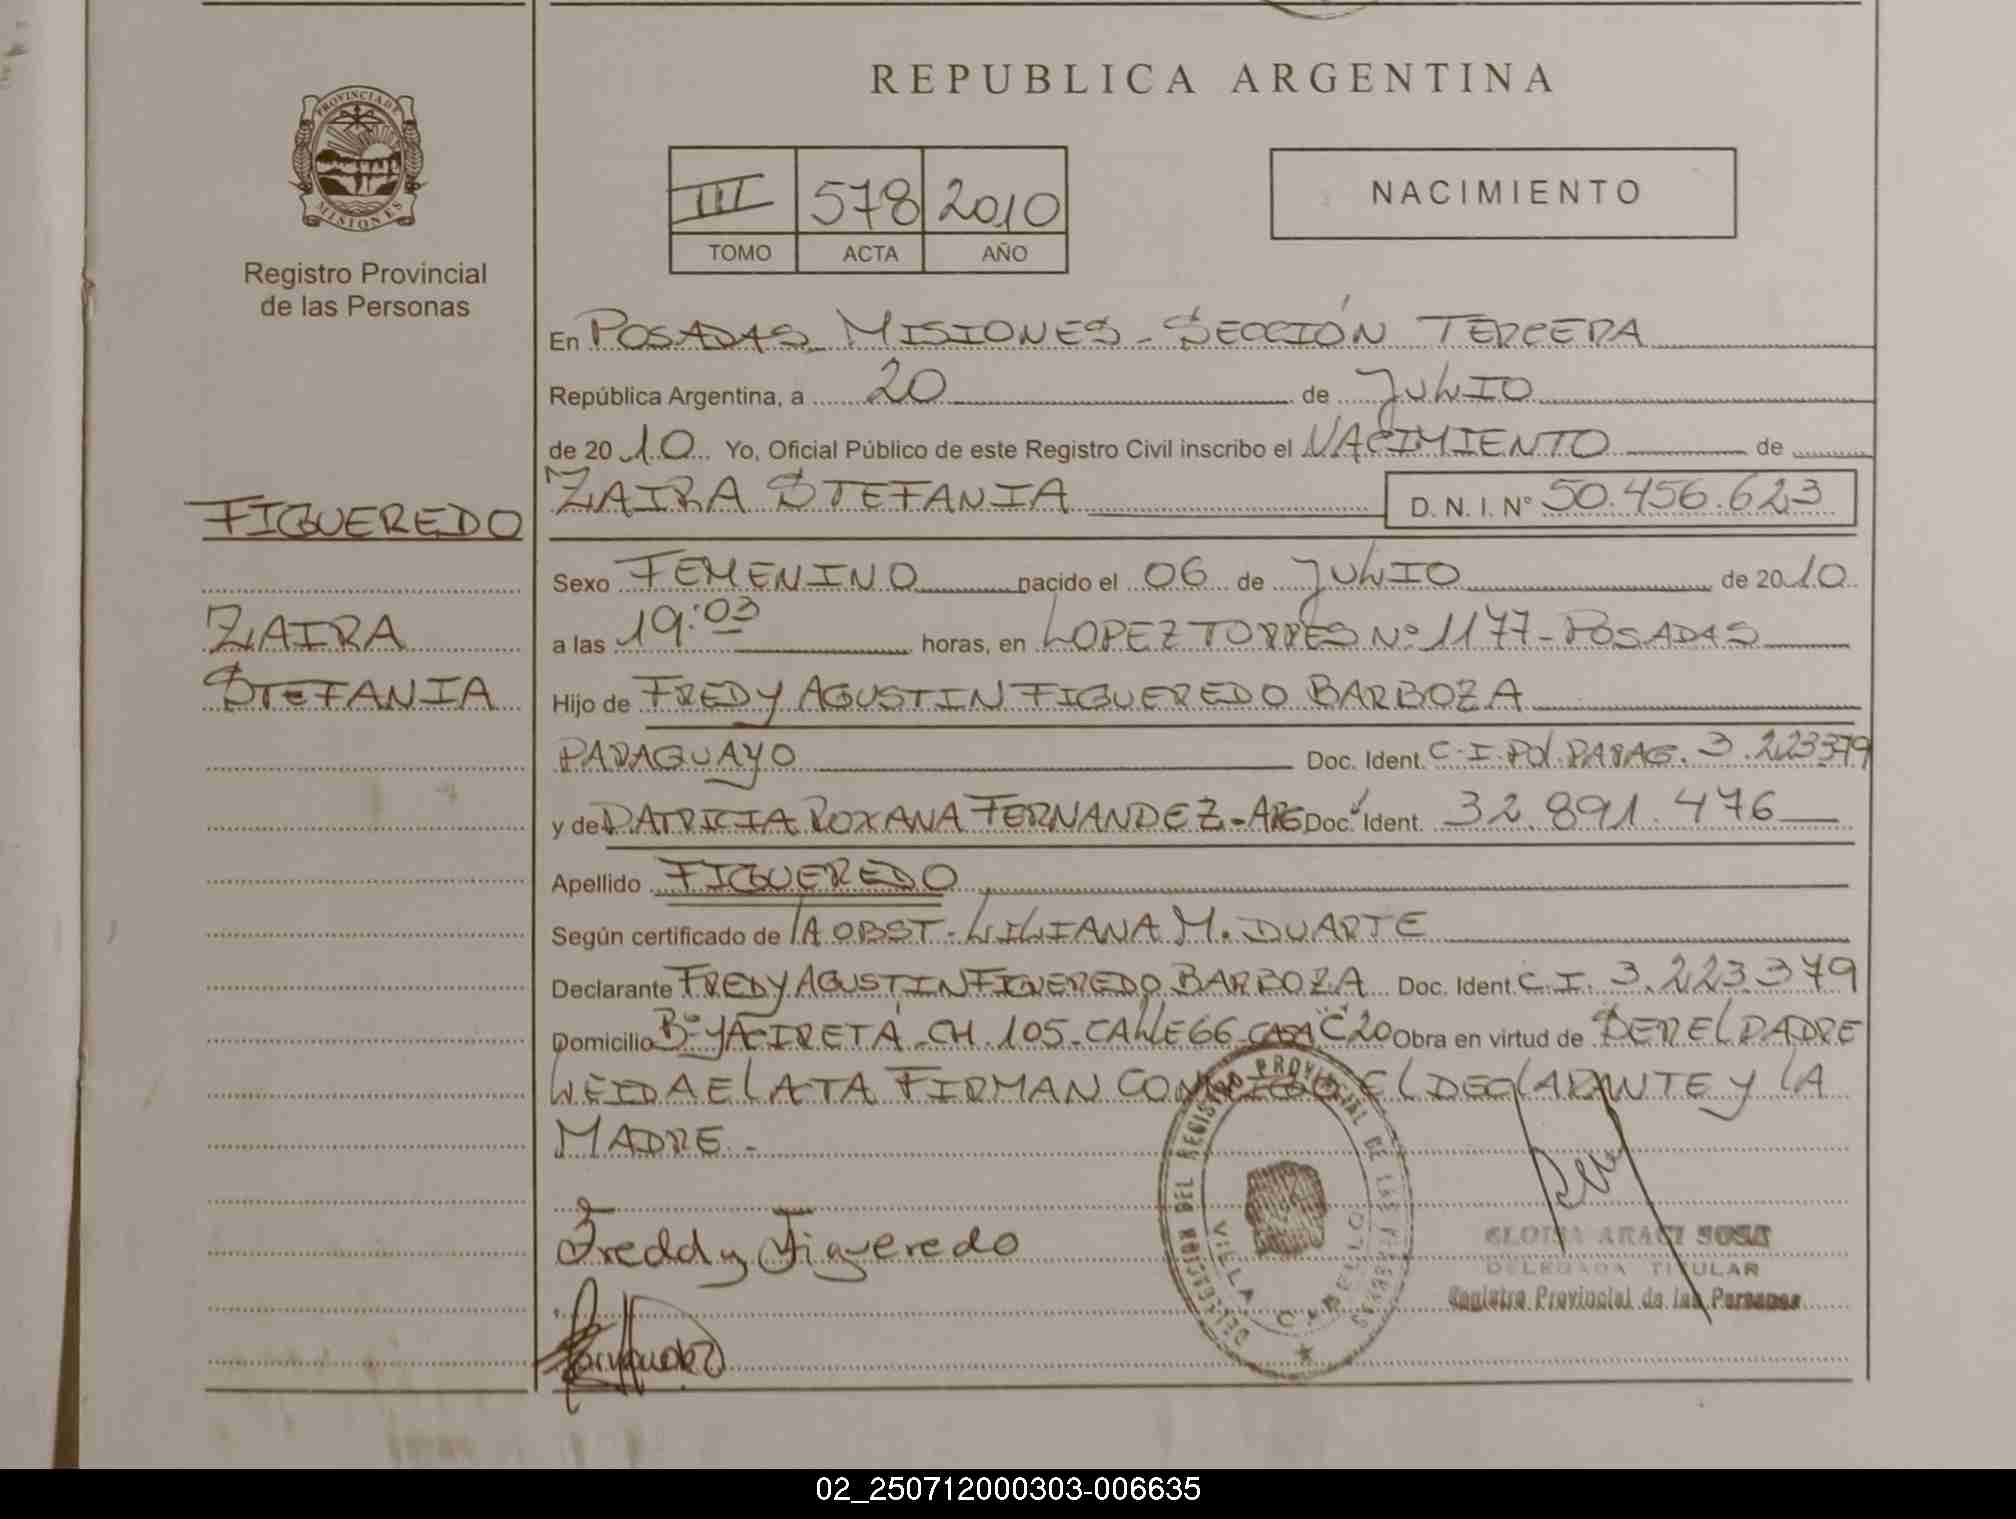 REPUBLICA ARGENTINA
PROVINCIA DE
MISIONES
Registro Provincial
de las Personas
III 578 2010
TOMO ACTA AÑO
NACIMIENTO
En POSADAS MISIONES - SECCIÓN TERCERA
República Argentina, a 20 de JULIO
de 2010 Yo, Oficial Público de este Registro Civil inscribo el NACIMIENTO de
ZAIRA STEFANIA D. N. I. N° 50.456.623
FIGUEREDO
ZAIRA
STEFANIA
Sexo FEMENINO nacido el 06 de JULIO de 2010
a las 19:03 horas, en LOPEZ TORRES N° 1177 - POSADAS
Hijo de FREDY AGUSTIN FIGUEREDO BARBOZA
PARAGUAYO Doc. Ident. C.I. Pol. PARAG. 3.223379
y de PATRICIA ROXANA FERNANDEZ - ARG Doc. Ident. 32.891.476
Apellido FIGUEREDO
Según certificado de lA OBST. LILIANA M. DUARTE
Declarante FREDY AGUSTIN FIGUEREDO BARBOZA Doc. Ident. C.I. 3.223.379
Domicilio B° YACIRETÁ - CH. 105 - CALLE 66 - CASA C 20 Obra en virtud de SER El PADRE
LEIDA El ATA FIRMAN CONMIGO El DEClARANTE y lA
MADRE.-
Freddy Figueredo
Fernandez
DIRECCION DEL REGISTRO PROVINCIAL DE LAS PERSONAS
VILLA CABELLO
ELOISA ARACI SOSA
DELEGADA TITULAR
Registro Provincial de las Personas
02_250712000303-006635